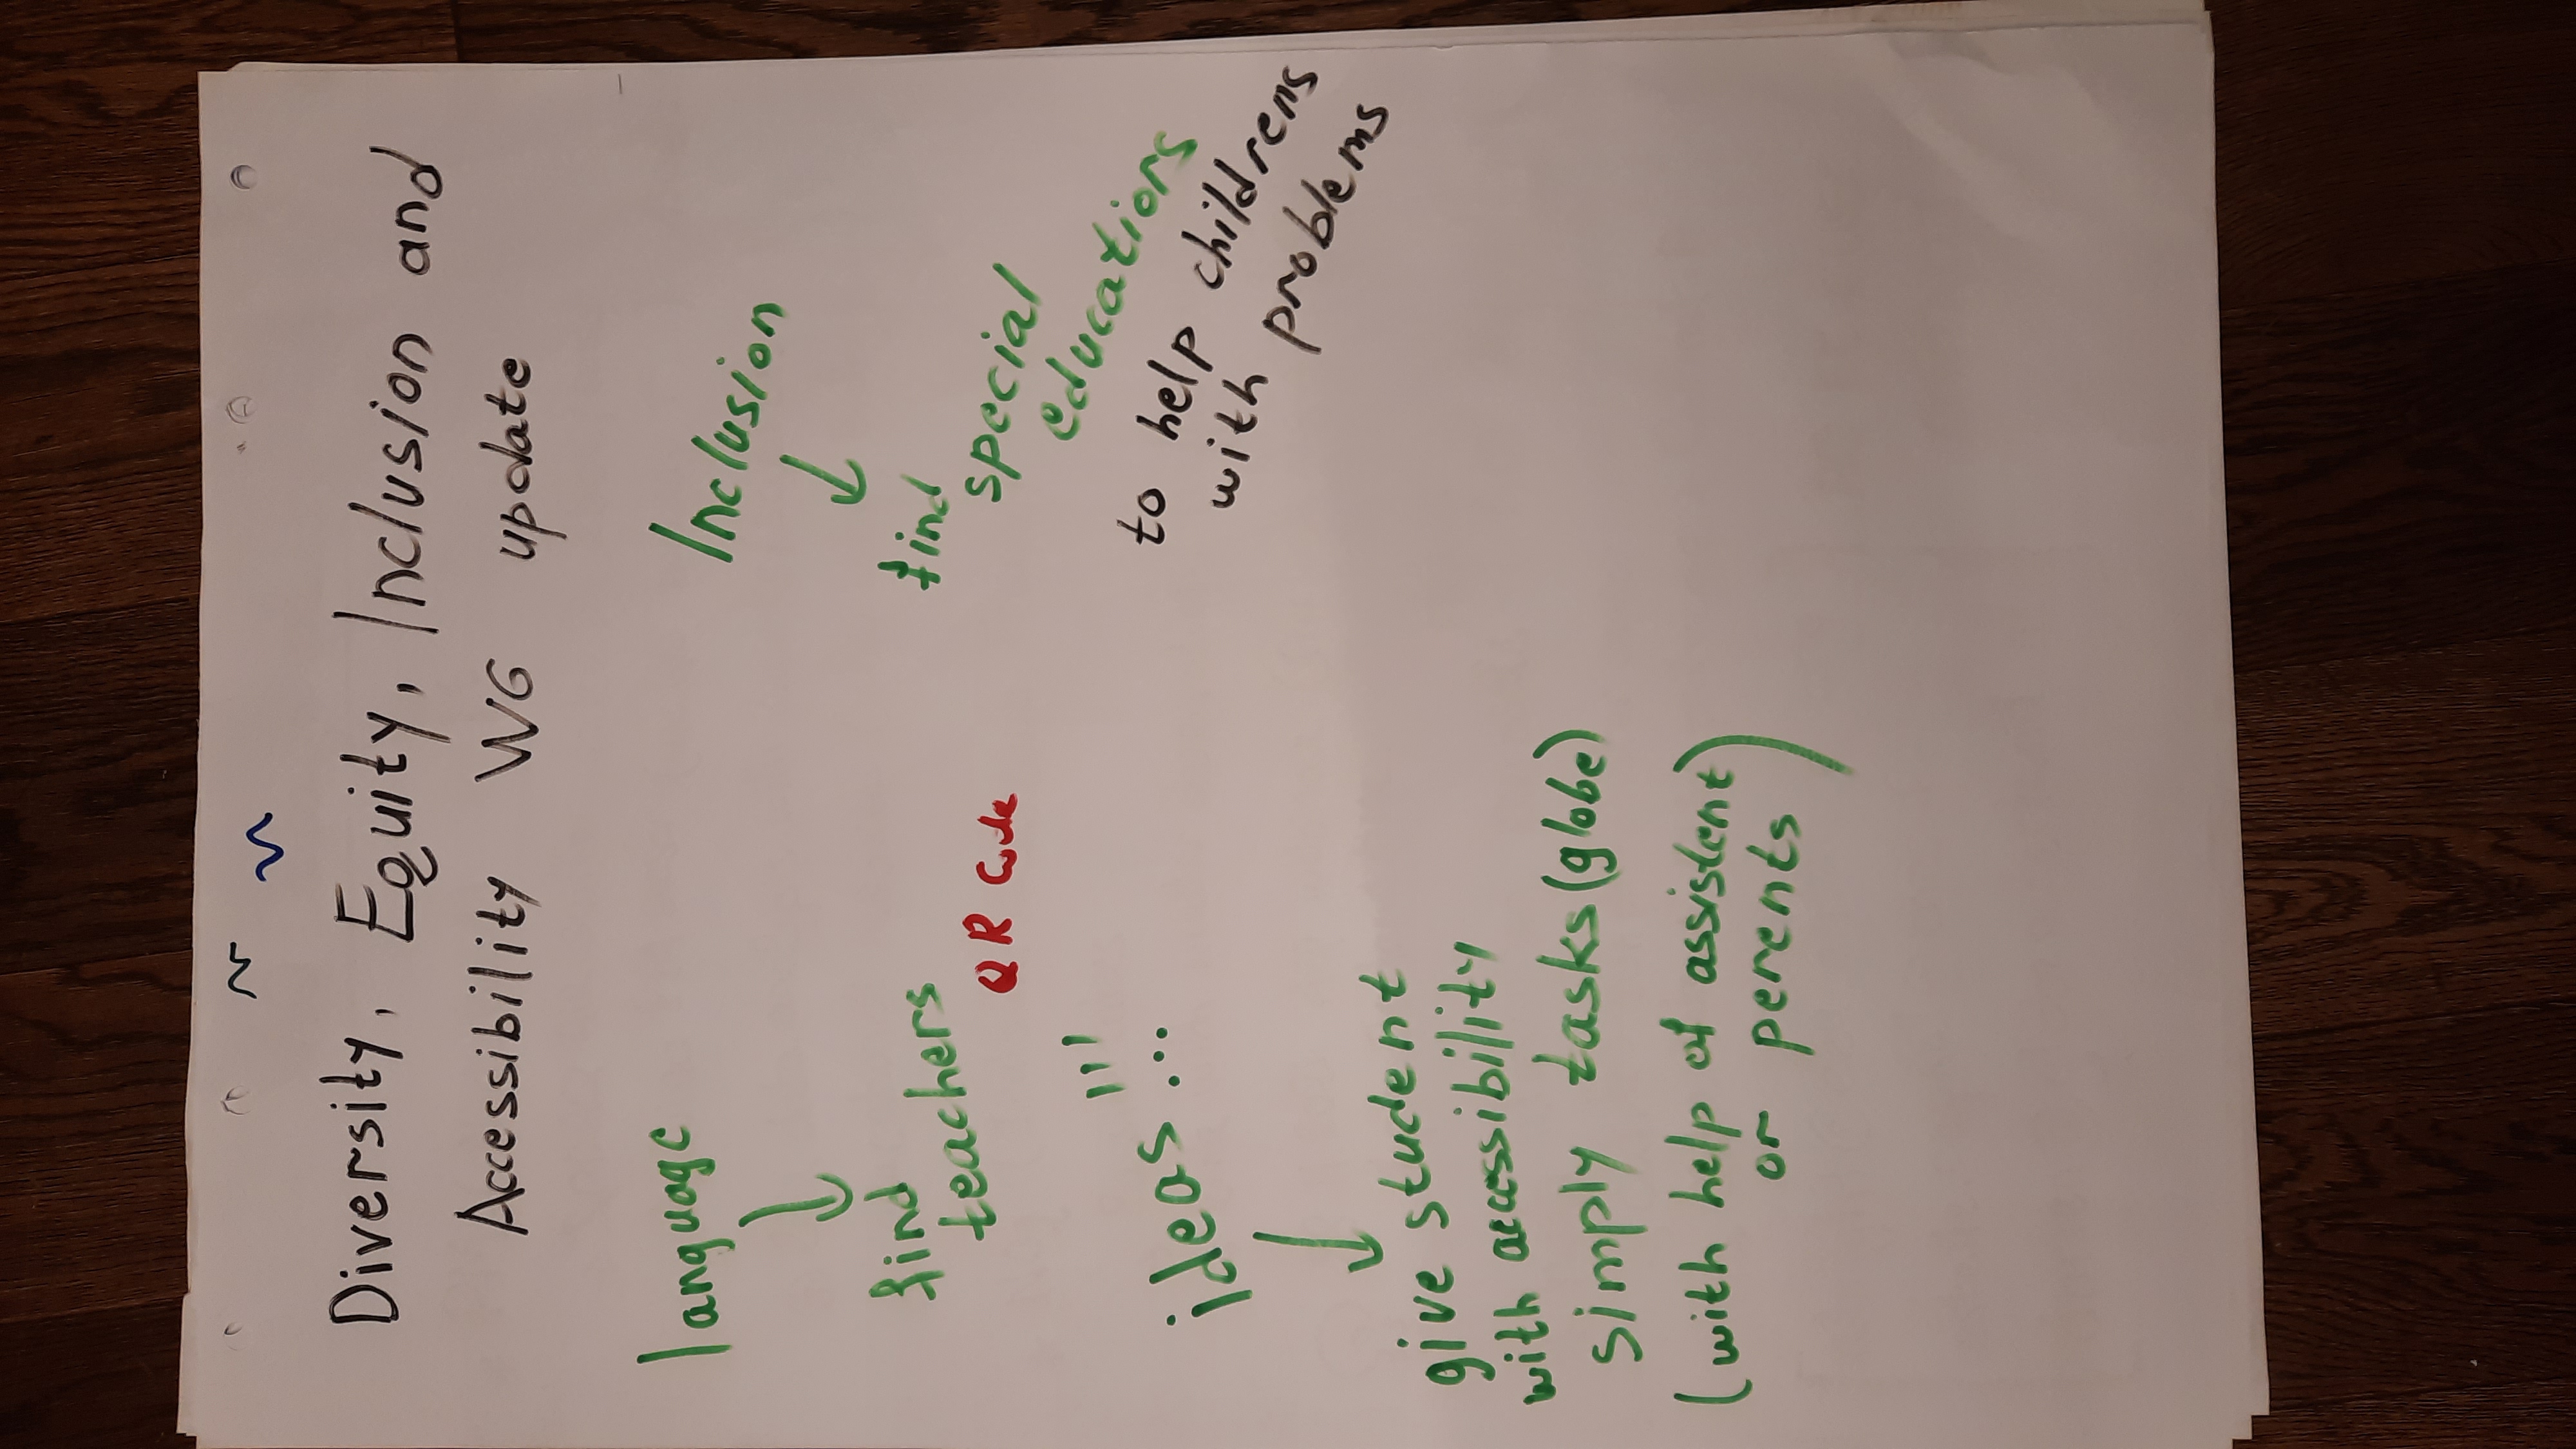 Diversity, Equity, Inclusion and
Accessibility WG update
language
find
teachers
QR Code
ideas ...
give student
with accessibility
simply tasks (globe)
(with help of assistent)
or perents
Inclusion
find
special
educations
to help childrens
with problems